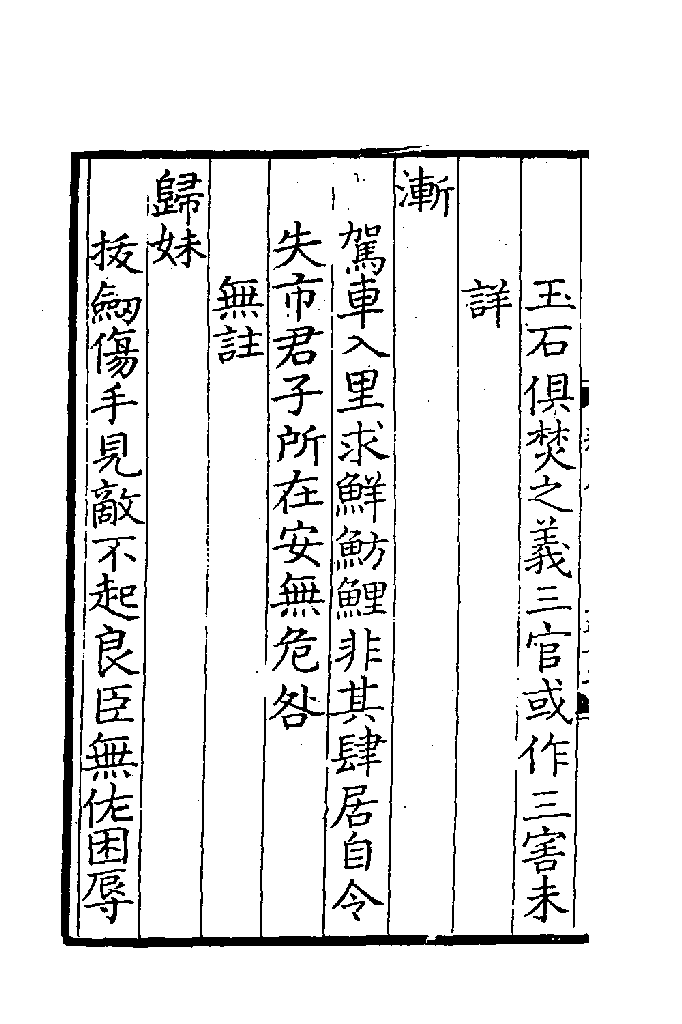 玉石俱焚之義三官或作三害未
詳
漸
駕車入里求鮮魴鯉非其肆居自令
失市君子所在安無危咎
無註
歸妹
拔劒傷手見敵不起良臣無佐困辱